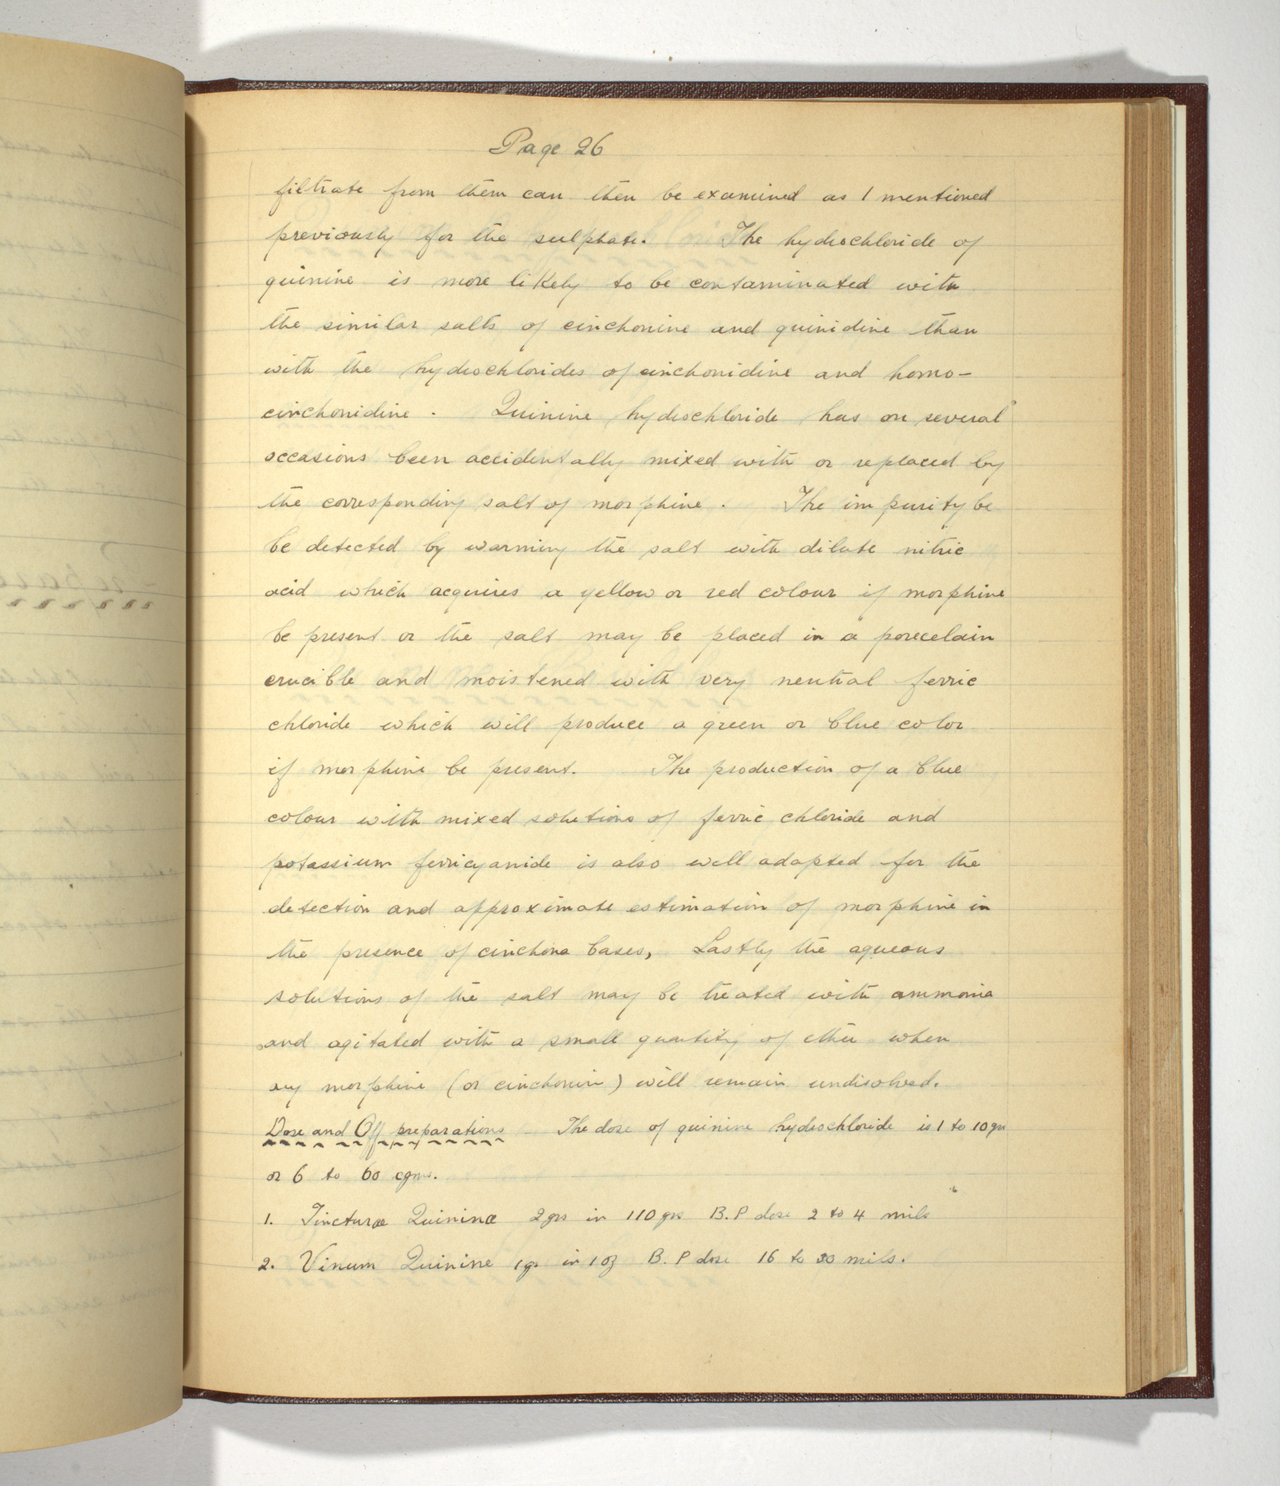 Page 26
filtrate from them can then be examined as I mentioned
previously for the sulphate. The hydrochloride of
quinine is more likely to be contaminated with
the similar salts of cinchonine and quinidine than
with the hydrochlorides of cinchonidine and homo-
cinchonidine. Quinine hydrochloride has on several
occasions been accidentally mixed with or replaced by
the corresponding salt of morphine. The impurity be
be detected by warming the salt with dilute nitric
acid which acquires a yellow or red colour if morphine
be present or the salt may be placed in a porecelain
crucible and moistened with very neutral ferric
chloride which will produce a green or blue color
if morphine be present. The production of a blue
colour with mixed solutions of ferric chloride and
potassium ferricyanide is also well adapted for the
detection and approximate estimation of morphine in
the presence of cinchona bases, Lastly the aqueous
solutions of the salt may be treated with ammonia
and agitated with a small quantity of ether when
any morphine (or cinchonin) will remain undisolved.
Dose and Off preparations The dose of quinine hydrochloride is 1 to 10 grs
or 6 to 60 cgms.
1. Tincturae Quininae 2grs in 110 grs B.P dose 2 to 4 mils
2. Vinum Quinine 1gr in 1oz B.P dose 16 to 30 mils.